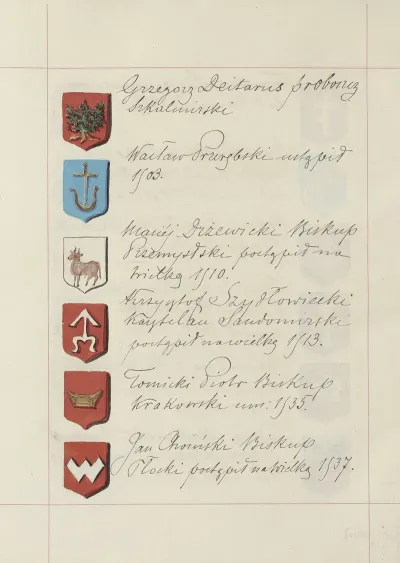 Grzegorz Deitarus proboszcz
Szkalmirski
Wacław Przerębski ustąpił
1503.
Maciéj Diżewicki Biskup
Przemyslski postąpił na
wielką 1510.
Krzysztof Szydłowiecki
Kasztelan Sandomirski
postąpił na wielką 1513.
Tomicki Piotr Biskup
Krakowski um: 1535.
Jan Choiński Biskup
Płocki postąpił na wielką 1537.